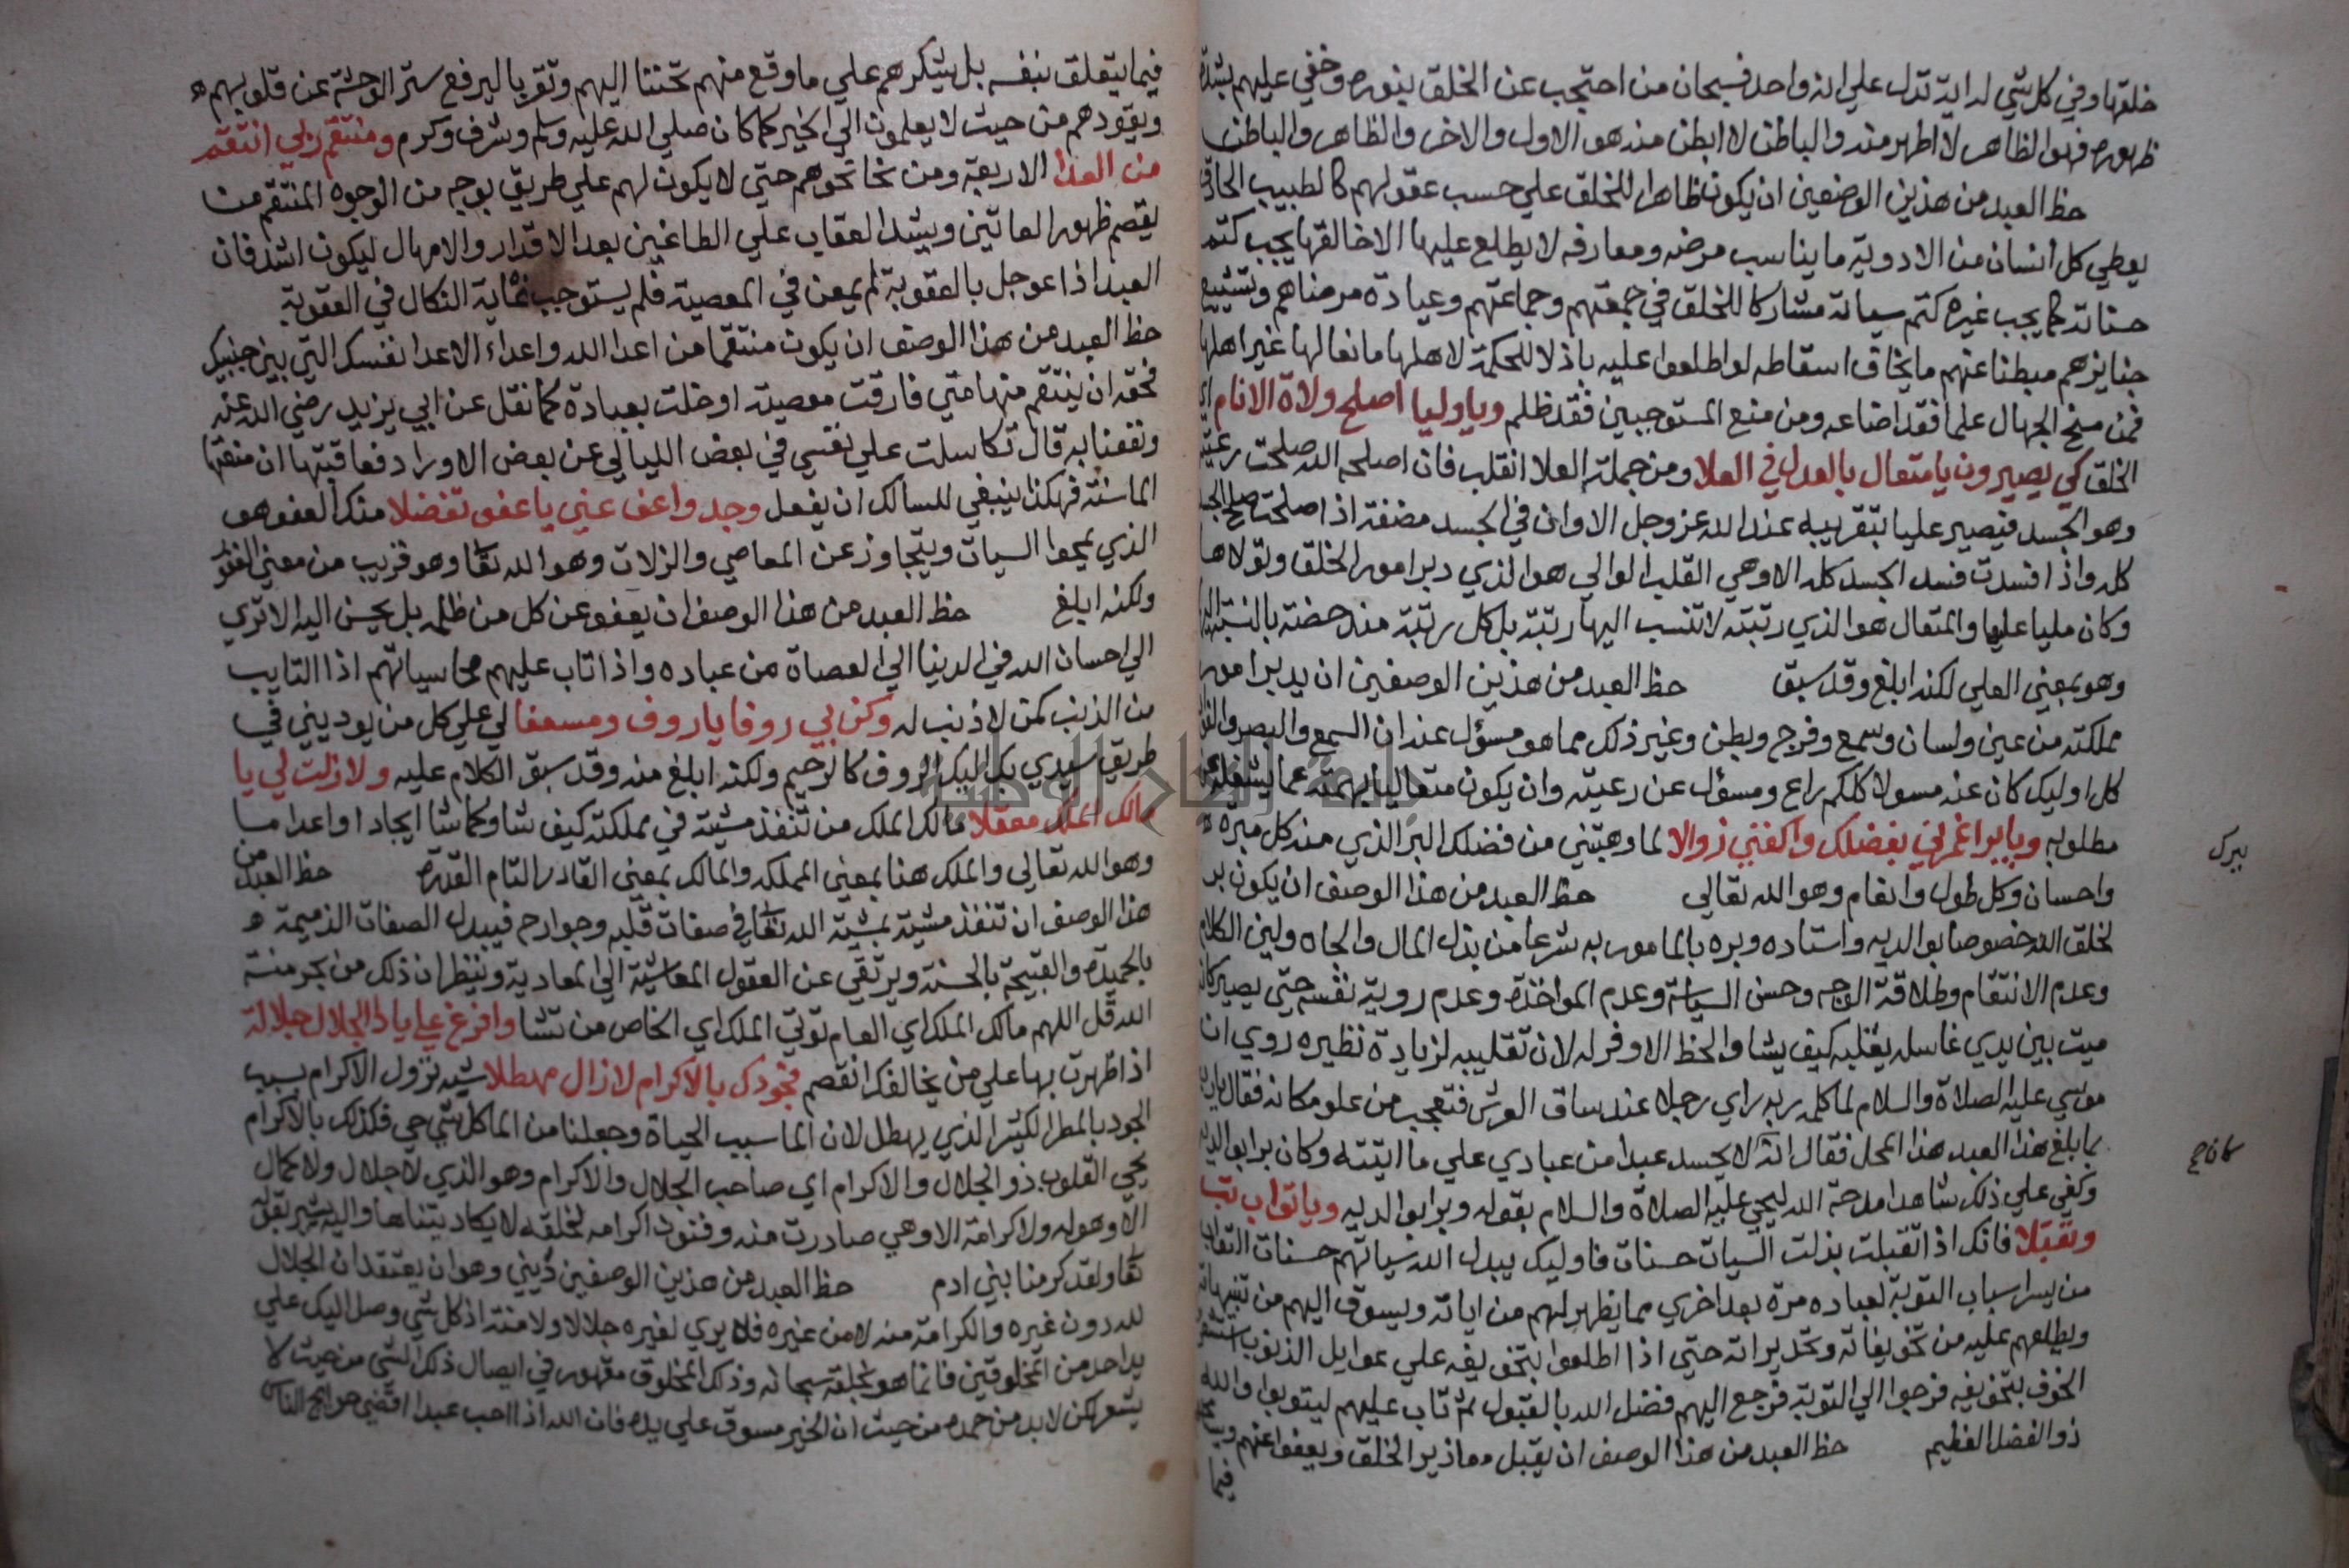 خلقها وفي كل شي له اية تدل علي انه واحد فسبحان من احتجب عن الخلق بنوره وخفي عليهم بشدة
ظهوره فهو الظاهر لا اظهر منه والباطن لا ابطن منه هو الاول والاخر والظاهر والباطن
حظ العبد من هذين الوصفين ان يكون ظاهرا للخلق علي حسب عقولهم كالطبيب الحاذق
يعطي كل انسان من الادوية ما يناسب مرضه ومعارفه لا يطلع عليها الا خالقها يجب كتم
حسناته كما يجب غيره كتم سياته مشاركا للخلق في جمعتهم وجماعتهم وعيادة مرضاهم وتشييع
جنايزهم مبطنا عنهم ما يخاف اسقاطه لو اطلعوا عليه باذلا للحكمة لاهلها مانعا لها غير اهلها
فمن منح الجهال علما فقد اضاعه ومن منع المستوجبين فقد ظلم ويا وليا اصلح ولاة الانام اي
الخلق كي يصيرون يا متعال بالعدل في العلا ومن جملة العلا انقلب فان اصلحه الله صلحت رعيته
وهو الجسد فيصير عليا بتقريبه عند الله عز وجل الا وان في الجسد مضغة اذا صلحت صلح الجسد
كله واذا فسدت فسد الجسد كله الا وهي القلب الوالي هو الذي دبر امور الخلق وتولاها
وكان مليا عليها والمتعال هو الذي رتبته لا تنسب اليها رتبة بل كل رتبة منحضة بالنسبة اليه
وهو بمعني العلي لكنه ابلغ وقد سبق حظ العبد من هذين الوصفين ان يدبر امور
مملكته من عين ولسان وسمع وفرج وبطن وغير ذلك مما هو مسؤل عنه ان السمع والبصر والفؤاد
كل اوليك كان عنه مسولا كلكم راع ومسؤل عن رعيته وان يكون متعاليا بهمته عما يشغله عن
مطلوبه ويا بر اغمرني بفضلك واكفني زوالا لما وهبتني من فضلك البر الذي منه كل مبرة
واحسان وكل طول وانعام وهو الله تعالي حظ العبد من هذا الوصف ان يكون بر
لخلق الله خصوصا بوالديه واستاده وبره بالمامور به شرعا من بذل المال والجاه ولين الكلام
وعدم الانتقام وطلاقة الوجه وحسن السياسة وعدم المواخذة وعدم روية نفسه حتي يصير كانه
ميت بين يدي غاسله يقلبه كيف يشا والحظ الاوفر له لان تقليبه لزيادة تظيره روي ان
موسي عليه الصلاة والسلام لما كلمه ربه راي رجلا عند ساق العرش فتعجب من علو مكانه فقال يا رب
بما بلغ هذا العبد هذا المحل فقال انه لا يحسد عبدا من عبادي علي ما اتيته وكان برا بوالديه
وكفي علي ذلك شاهدا مدحة الله ليحي عليه الصلاة والسلام بقوله وبرا بوالديه ويا تواب تب
وتقبلا فانك اذا تقبلت بذلت السيات حسنات فاوليك يبدل الله سياتهم حسنات التواب
من يسر اسباب التوبة لعباده مرة بعد اخري مما يظهر لهم من اياته ويسوق اليهم من تنبيهاته
ويطلعهم عليه من تخويفاته وتحذيراته حتي اذا اطلعوا بتخويفه علي عوايل الذنوب استشعروا
الخوف بتخويفه فرجوا الي التوبة فرجع اليهم فضل الله بالقبول ثم تاب عليهم ليتوبوا والله
ذو الفضل العظيم حظ العبد من هذا الوصف ان يقبل معاذير الخلق ويعفوا عنهم
فيما
يبرك
فيما يتعلق بنفسه بل يشكرهم علي ما وقع منهم تحننا اليهم وتقربا ليرفع ستر الوحشة عن قلوبهم
ويقودهم من حيث لا يعلمون الي الخير كما كان صلي الله عليه وسلم وشرف وكرم ومنتقم ربي انتقم
من العدا الاربعة ومن نحا نحوهم حتي لا يكون لهم علي طريق بوجه من الوجوه المنتقم من
يقصم ظهور العاتين ويشد العقاب علي الطاغين بعد الاقدار والامهال ليكون اشد فان
العبد اذا عوجل بالعقوبة لم يمعن في المعصية فلم يستوجب غاية النكال في العقوبة
حظ العبد من هذا الوصف ان يكون منتقما من اعدا الله واعداء الاعدا نفسك التي بين جنبيك
فحقه ان ينتقم منها متي فارقت معصية او خلت بعبادة كما نقل عن ابي يزيد رضي الله عنه
ونفعنا به قال تكاسلت علي نفسي في بعض الليالي عن بعض الاوراد فعاقبتها ان منعتها
الما سنة فهكذا ينبغي للسالك ان يفعل وجد واعف عني يا عفو تفضلا منك العفو هو
الذي يمحوا السيات ويتجاوز عن المعاصي والزلات وهو الله تعا وهو قريب من معني الغفور
ولكنه ابلغ حظ العبد من هذا الوصف ان يعفو عن كل من ظلمه بل يحسن اليه الا تري
الي احسان الله في الدنيا الي العصاة من عباده واذا تاب عليهم محا سياتهم اذا التايب
من الذنب كمن لا ذنب له وكن بي روفا يا روف ومسعفا لي علي كل من يوديني في
طريق سيدي بك اليك الروف كالرحيم ولكنه ابلغ منه وقد سبق الكلام عليه ولا زلت لي يا
مالك الملك معقلا مالك الملك من تنفذ مشيته في مملكته كيف شا وكما شا ايجادا واعداما
وهو الله تعالي والملك هنا بمعني المملكه والمالك بمعني القادر التام القدرة حظ العبد من
هذا الوصف ان تنفذ مشيته بمشية الله تعا في صفات قلبه وجوارحه فيبدل الصفات الذميمة
بالحميدة والقبيحة بالحسنة ويرتقي عن العقول المعاشية الي المعادية وينظر ان ذلك من بحر منة
الله قل اللهم مالك الملك اي العام توتي الملك اي الخاص من تشا وافرغ علي يا ذا الجلال جلالة
اذا ظهرت بها علي من يخالفك انقصم فجودك بالاكرام لا زال مهطلا شبه نزول الاكرام بسبب
الجود بالمطر الكثير الذي يهطل لان الما سبب الحياة وجعلنا من الما كل شي حي فكذلك بالاكرام
يحي القلوب ذو الجلال والاكرام اي صاحب الجلال والاكرام وهو الذي لا جلال ولا كمال
الا وهو له ولا كرامة الا وهي صادرت منه وفنون اكرامه لخلقه لا يكاد يتناها واليه يشير بقوله
تعا ولقد كرمنا بني ادم حظ العبد من هذين الوصفين ديني وهو ان يعتقد ان الجلال
لله دون غيره والكرامة منه لا من غيره فلا يري لغيره جلالا ولا منة اذ كل شي وصل اليك علي
يد احد من المخلوقين فانما هو بخلقه سبحانه وذلك المخلوق مقهور في ايصال ذلك الشي من حيث لا
يشعر لكن لا بد من حمده من حيث ان الخير مسوق علي يده فان الله اذا احب عبدا اقضي حوايج الناس